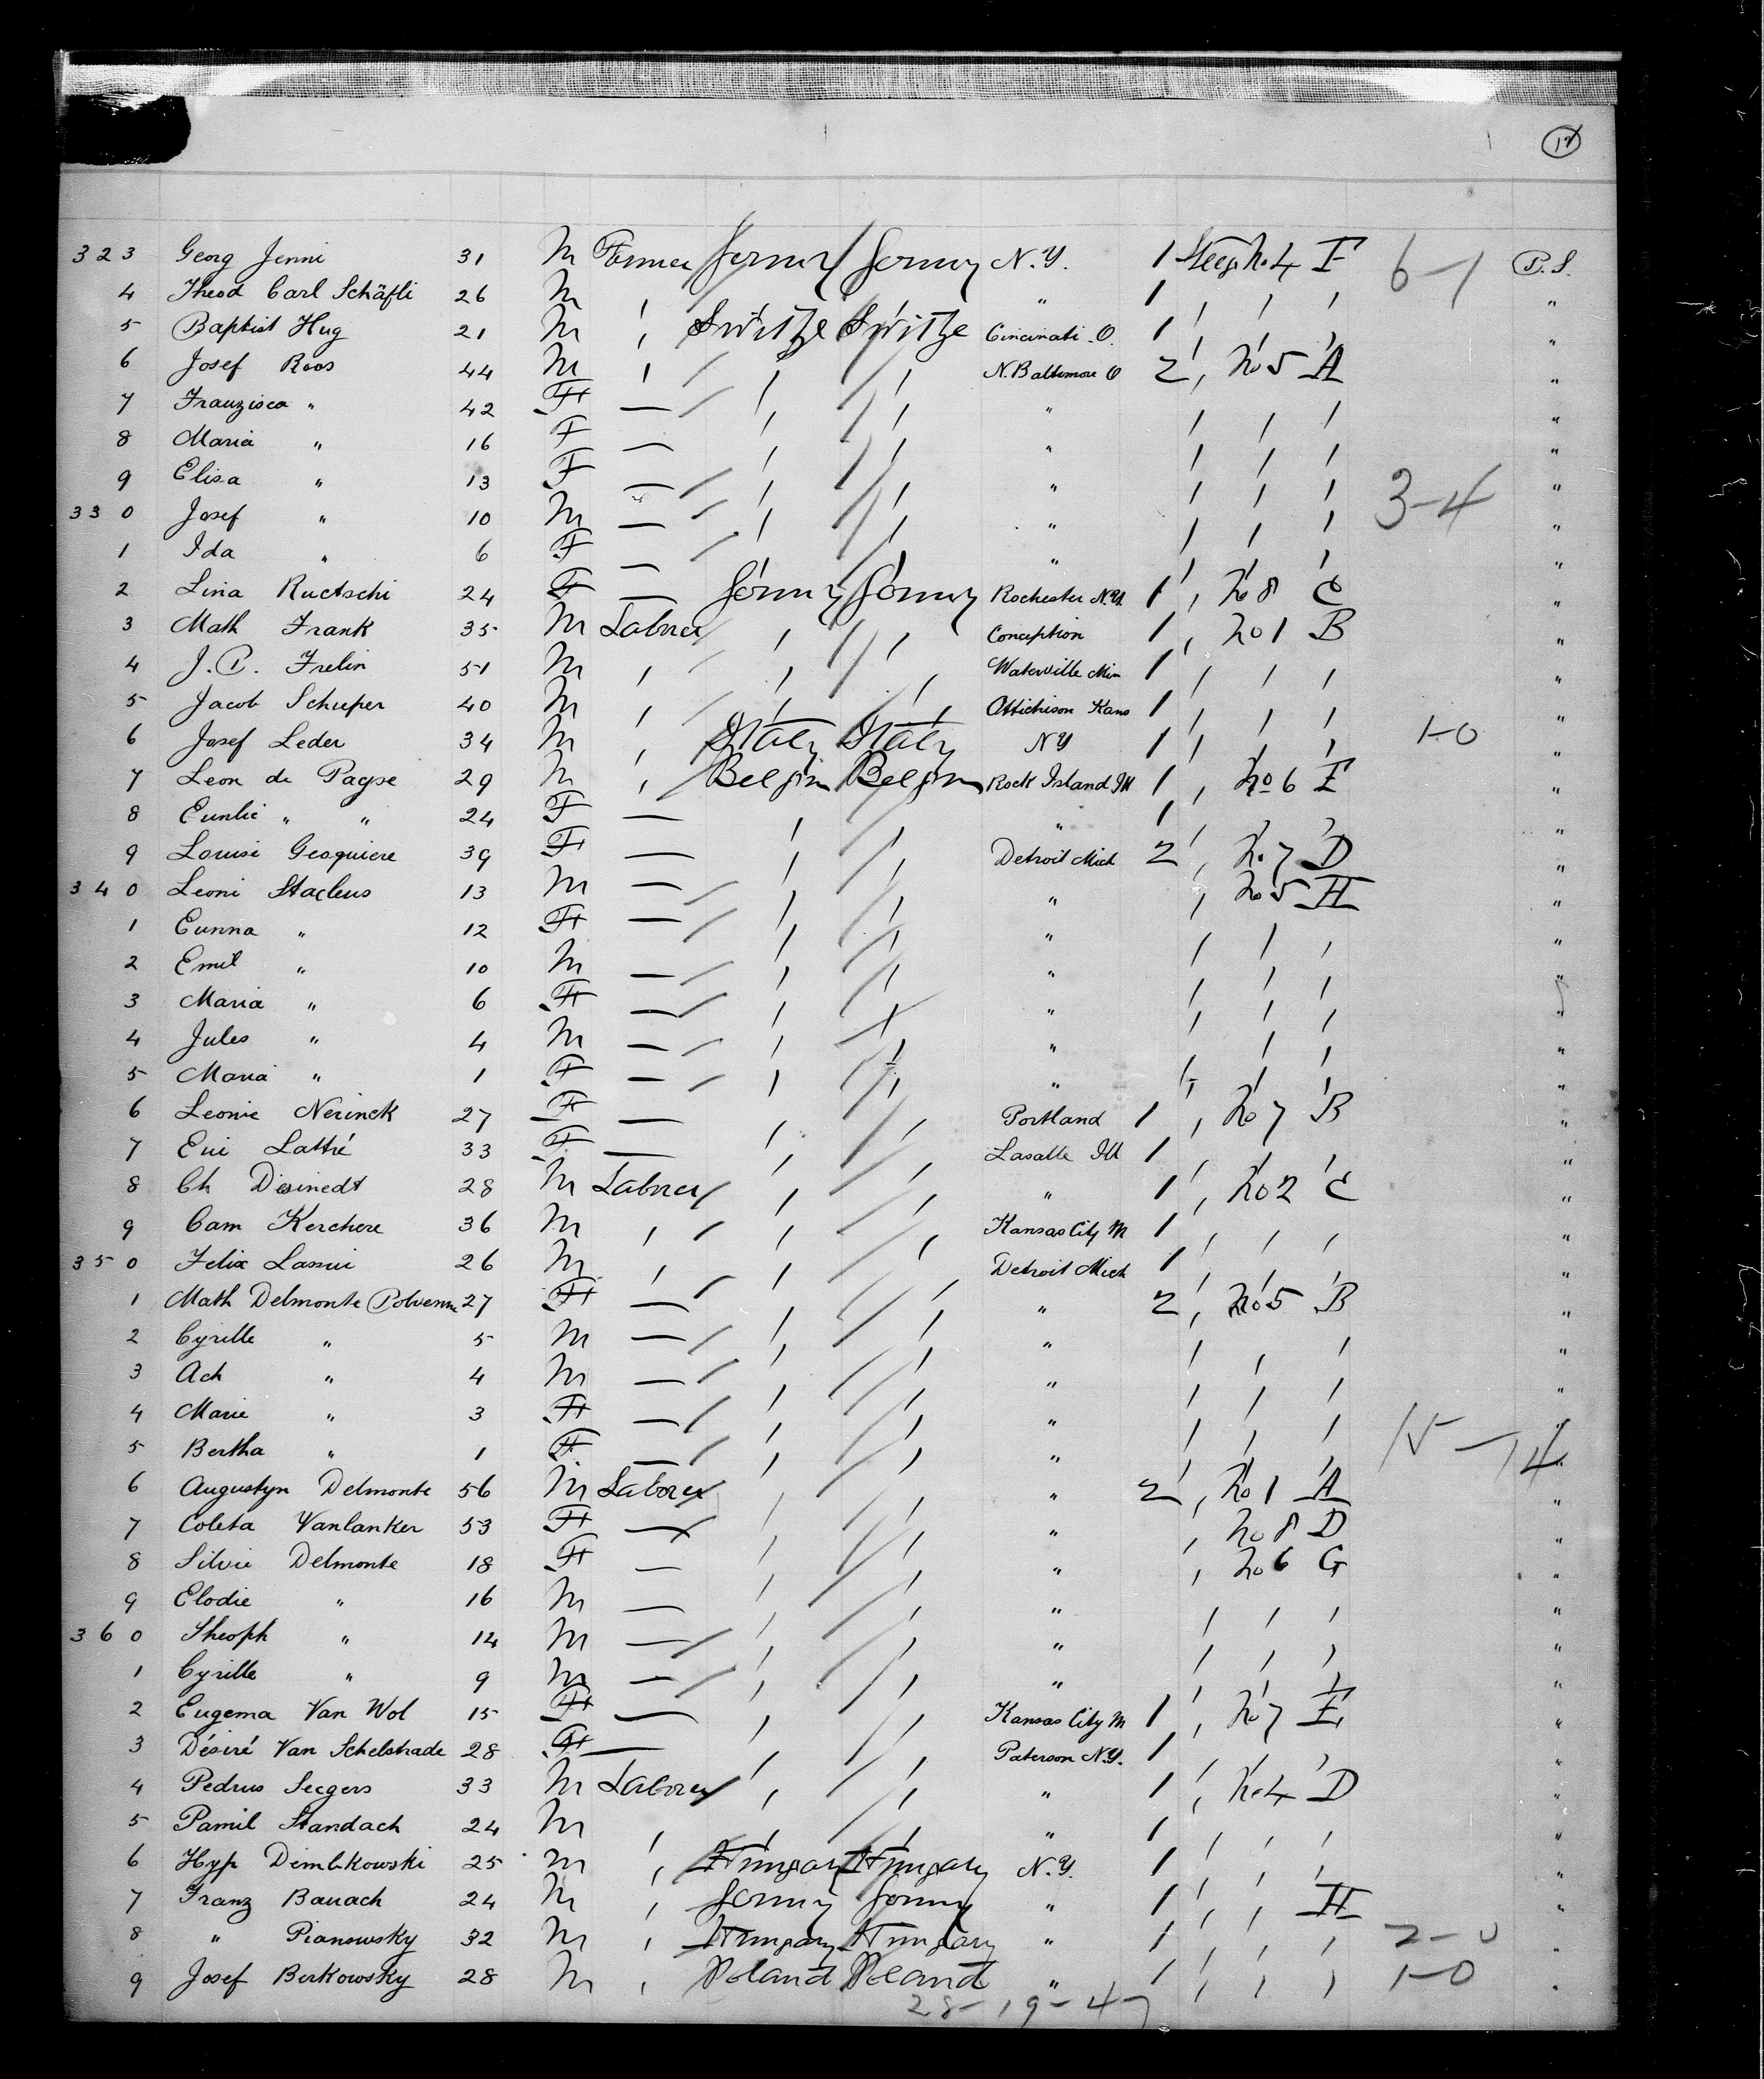 17
323 Georg Jenni 31 M Farmer Germny Germny N.Y. 1 Steege No 4 F 6-1 P.S.
4 Theod Carl Schäfli 26 M " 1 "
5 Baptist Hug 21 M Switze Switze Cincinati O. 1 "
6 Josef Roos 44 M N. Baltimore O 2 No 5 A "
7 Franzisca " 42 F — " "
8 Maria " 16 F — " "
9 Elisa " 13 F — " "
330 Josef " 10 M — " 3-4 "
1 Ida " 6 F — " "
2 Lina Ructschi 24 F — Germny Germny Rochester N.Y. 1 No 8 C "
3 Math Frank 35 M Laborer Conception 1 No 1 B "
4 J. P. Frelin 51 M Waterville Min 1 "
5 Jacob Schuper 40 M Attichison Kans 1 "
6 Josef Leder 34 M Italy Italy NY 1 1-0 "
7 Leon de Paepe 29 M Belgim Belgim Rock Island Ill 1 No 6 E "
8 Eunlie " " 24 F — " 1 "
9 Louise Geoquiere 39 F — Detroit Mich 2 No 7 D "
340 Leoni Staelens 13 M — " No 5 H "
1 Eunna " 12 F — " "
2 Emil " 10 M — " "
3 Maria " 6 F — " "
4 Jules " 4 M — " "
5 Maria " 1 F — " "
6 Leonie Nerinck 27 F — Portland 1 No 7 B "
7 Eui Lattré 33 F — Lasalle Ill 1 "
8 Ch Desinedt 28 M Laborer " 1 No 2 C "
9 Cam Kerchere 36 M Kansas City M 1 "
350 Felix Lannui 26 M Detroit Mich 1 "
1 Math Delmonte Polvenne 27 F — " 2 No 5 B "
2 Cyrille " 5 M — " "
3 Ach " 4 M — " "
4 Marie " 3 F — " "
5 Bertha " 1 F — " 15-14 "
6 Augustyn Delmonte 56 M Laborer " 2 No 1 A "
7 Coleta Vanlanker 53 F — " No 8 D "
8 Silvie Delmonte 18 F — " No 6 G "
9 Elodie " 16 M — " "
360 Theoph " 14 M — " "
1 Cyrille " 9 M — " "
2 Eugema Van Wol 15 F — Kansas City M 1 No 7 E "
3 Désiré Van Schelstrade 28 F — Paterson N.Y. 1 "
4 Pedrus Seegers 33 M Laborer " 1 No 4 D "
5 Pamil Standach 24 M " 1 "
6 Hyp Dembkowski 25 M Hungary Hungary N.Y. 1 "
7 Franz Banach 24 M Germny Germny " 1 H "
8 " Pianowsky 32 M Hungary Hungary " 1 2-0 "
9 Josef Berkowsky 28 M Poland Poland " 1 1-0 "
28-19-47